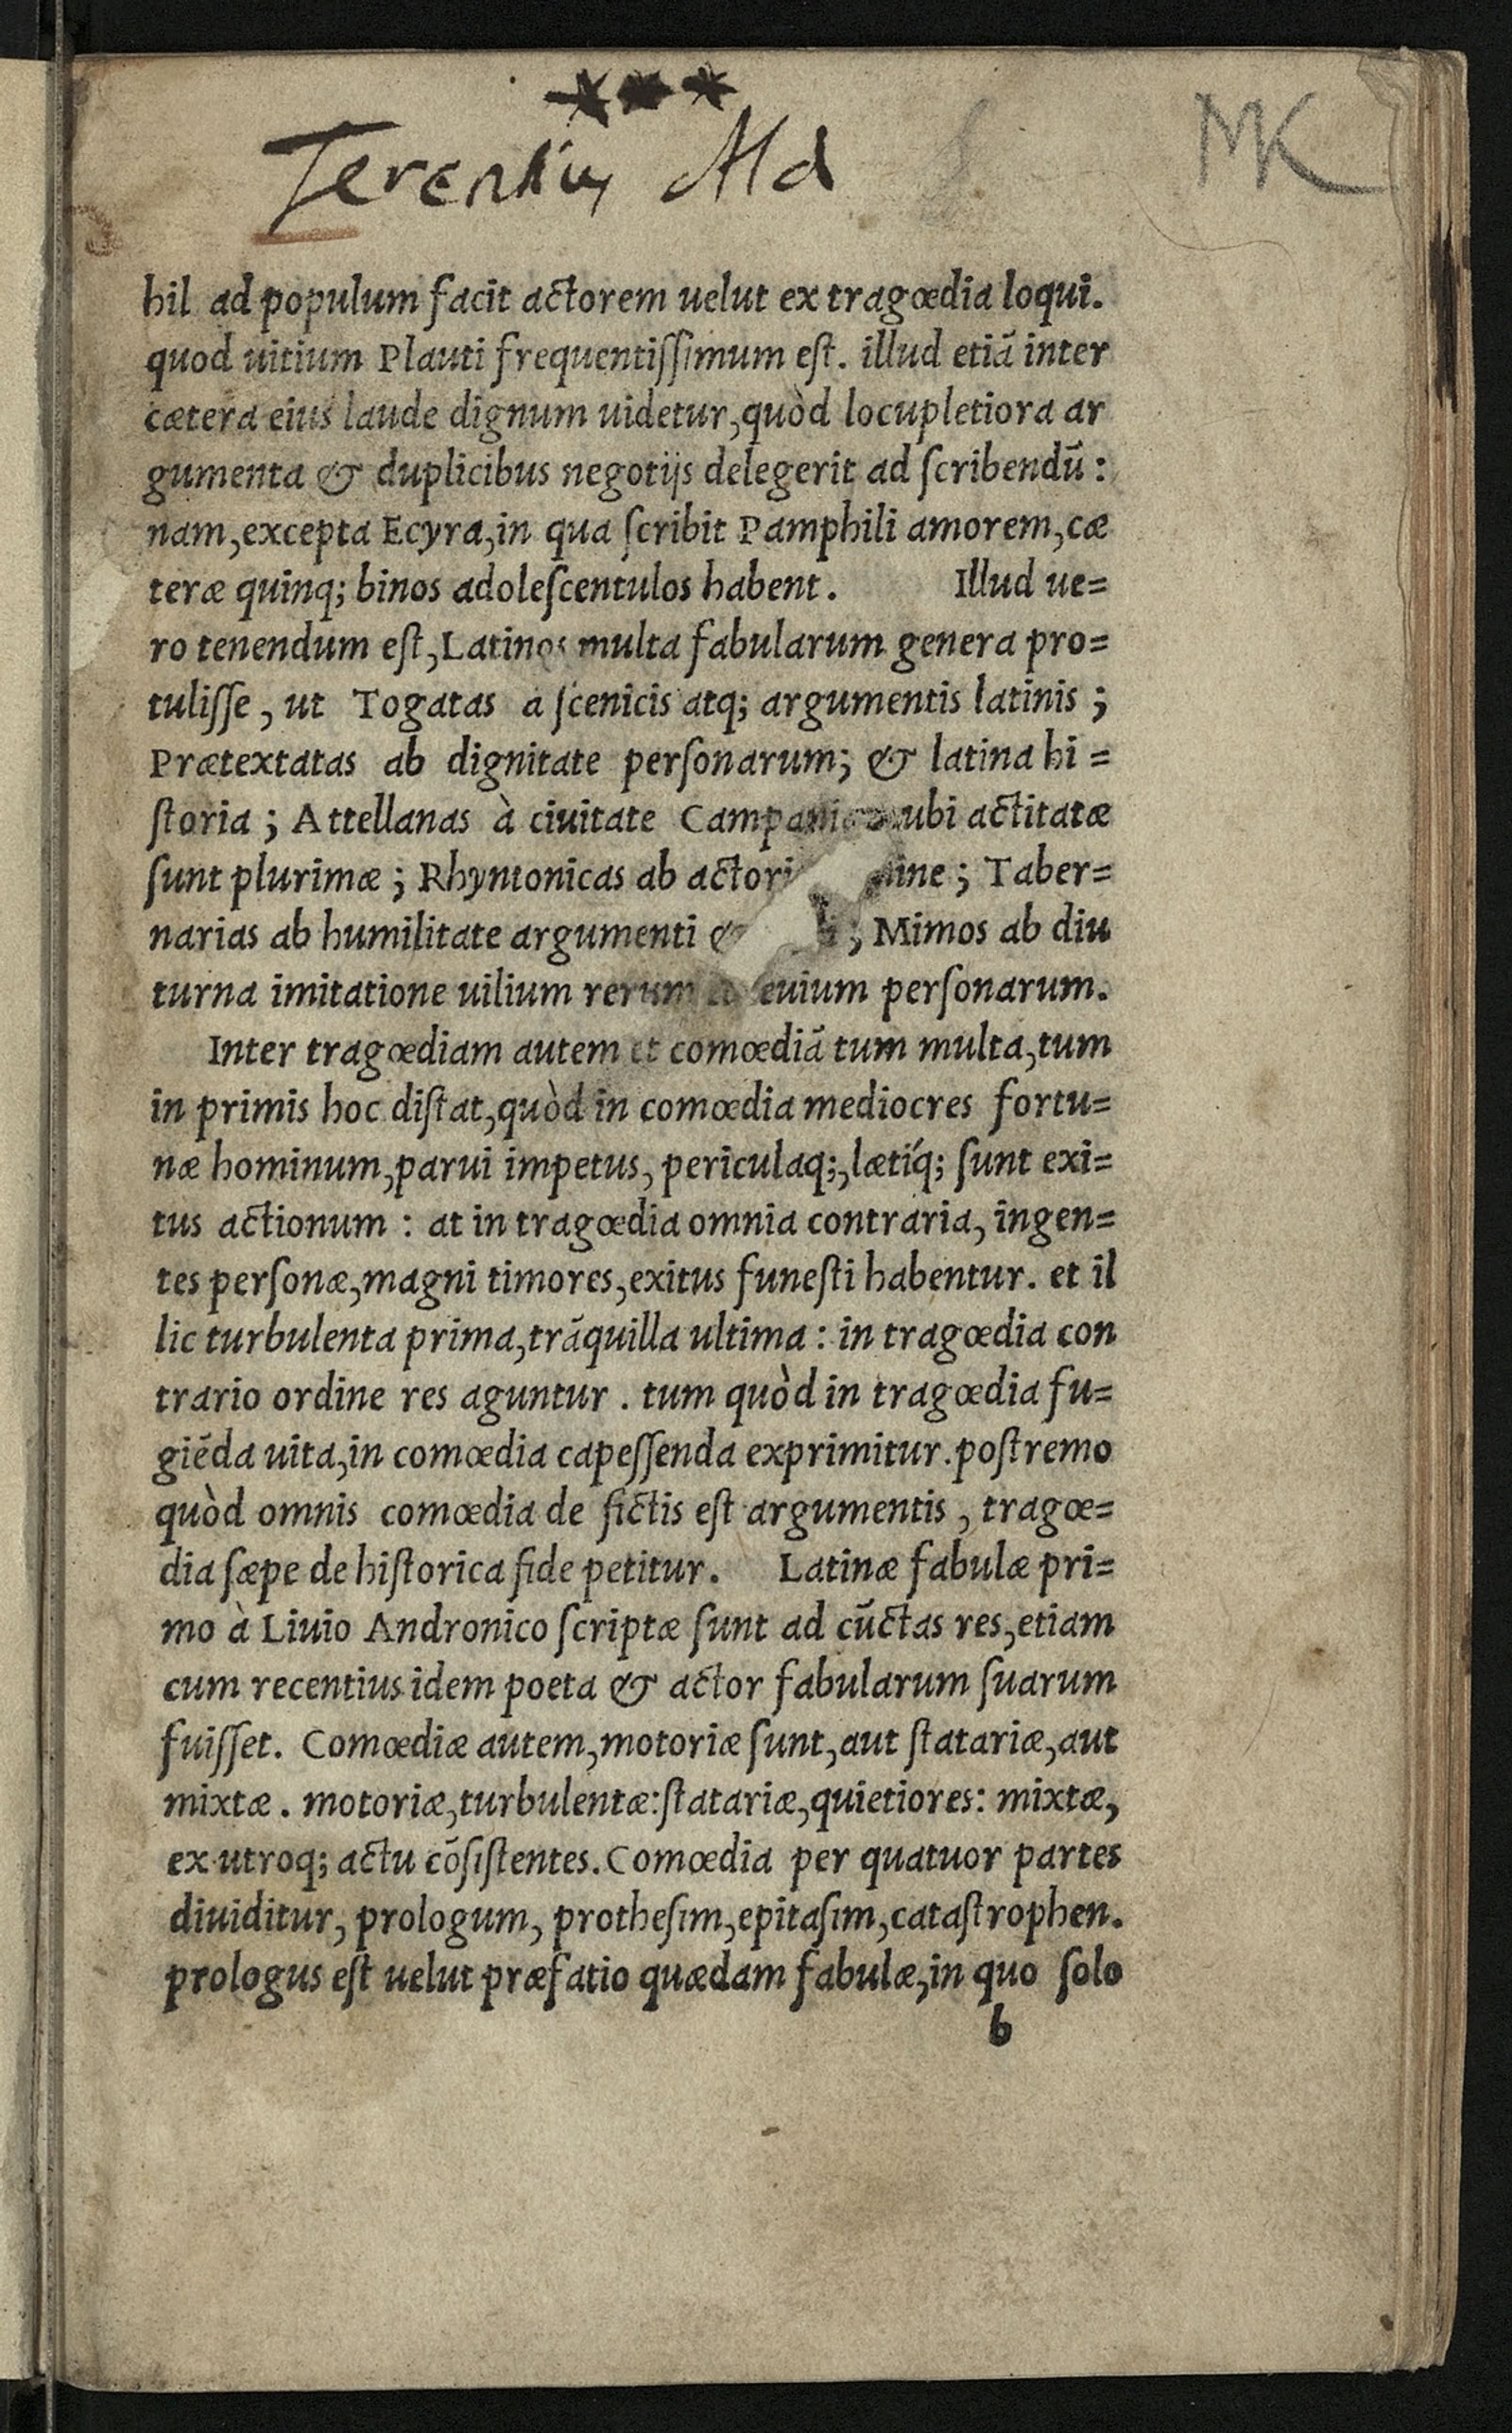 ***
Terentius Ald
MK
hil ad populum facit actorem uelut ex tragœdia loqui.
quod uitium Plauti frequentiſſimum eſt. illud etiā inter
cætera eius laude dignum uidetur, quòd locupletiora ar
gumenta & duplicibus negotijs delegerit ad ſcribendū:
nam, excepta Ecyra, in qua ſcribit Pamphili amorem, cæ
teræ quinq; binos adoleſcentulos habent. Illud ue=
ro tenendum eſt, Latinos multa fabularum genera pro=
tuliſſe, ut Togatas a ſcenicis atq; argumentis latinis;
Prætextatas ab dignitate perſonarum; & latina hi=
ſtoria; Attellanas à ciuitate ubi actitatæ
ſunt plurimæ; Rhyntonicas ab ; Taber=
narias ab humilitate argumenti & ; Mimos ab diu
turna imitatione uilium rerum perſonarum.
Inter tragœdiam autem et comœdiā tum multa, tum
in primis hoc diſtat, quòd in comœdia mediocres fortu=
næ hominum, parui impetus, periculaq;, lætíq; ſunt exi=
tus actionum: at in tragœdia omnia contraria, ingen=
tes perſonæ, magni timores, exitus funeſti habentur. et il
lic turbulenta prima, trāquilla ultima: in tragœdia con
trario ordine res aguntur. tum quòd in tragœdia fu=
giēda uita, in comœdia capeſſenda exprimitur. poſtremo
quòd omnis comœdia de fictis eſt argumentis, tragœ=
dia ſæpe de hiſtorica fide petitur. Latinæ fabulæ pri=
mo à Liuio Andronico ſcriptæ ſunt ad cūctas res, etiam
cum recentius idem poeta & actor fabularum ſuarum
fuiſſet. Comœdiæ autem, motoriæ ſunt, aut ſtatariæ, aut
mixtæ. motoriæ, turbulentæ: ſtatariæ, quietiores: mixtæ,
ex utroq; actu cōſiſtentes. Comœdia per quatuor partes
diuiditur, prologum, protheſim, epitaſim, cataſtrophen.
prologus eſt uelut præfatio quædam fabulæ, in quo ſolo
b